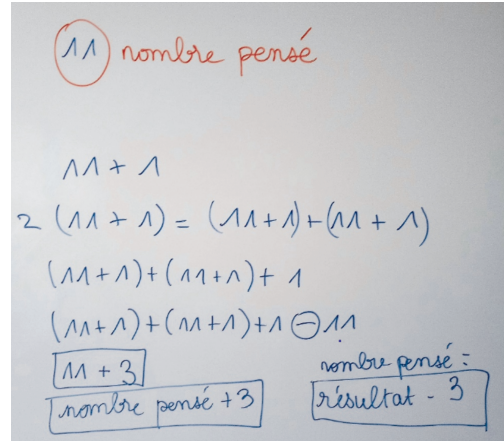 11 nombre pensé
11 + 1
2 (11 + 1) = (11+1)+(11 + 1)
(11+1)+(11+1)+ 1
(11+1)+(11+1)+1 - 11
11 + 3
nombre pensé +3
nombre pensé =
résultat - 3